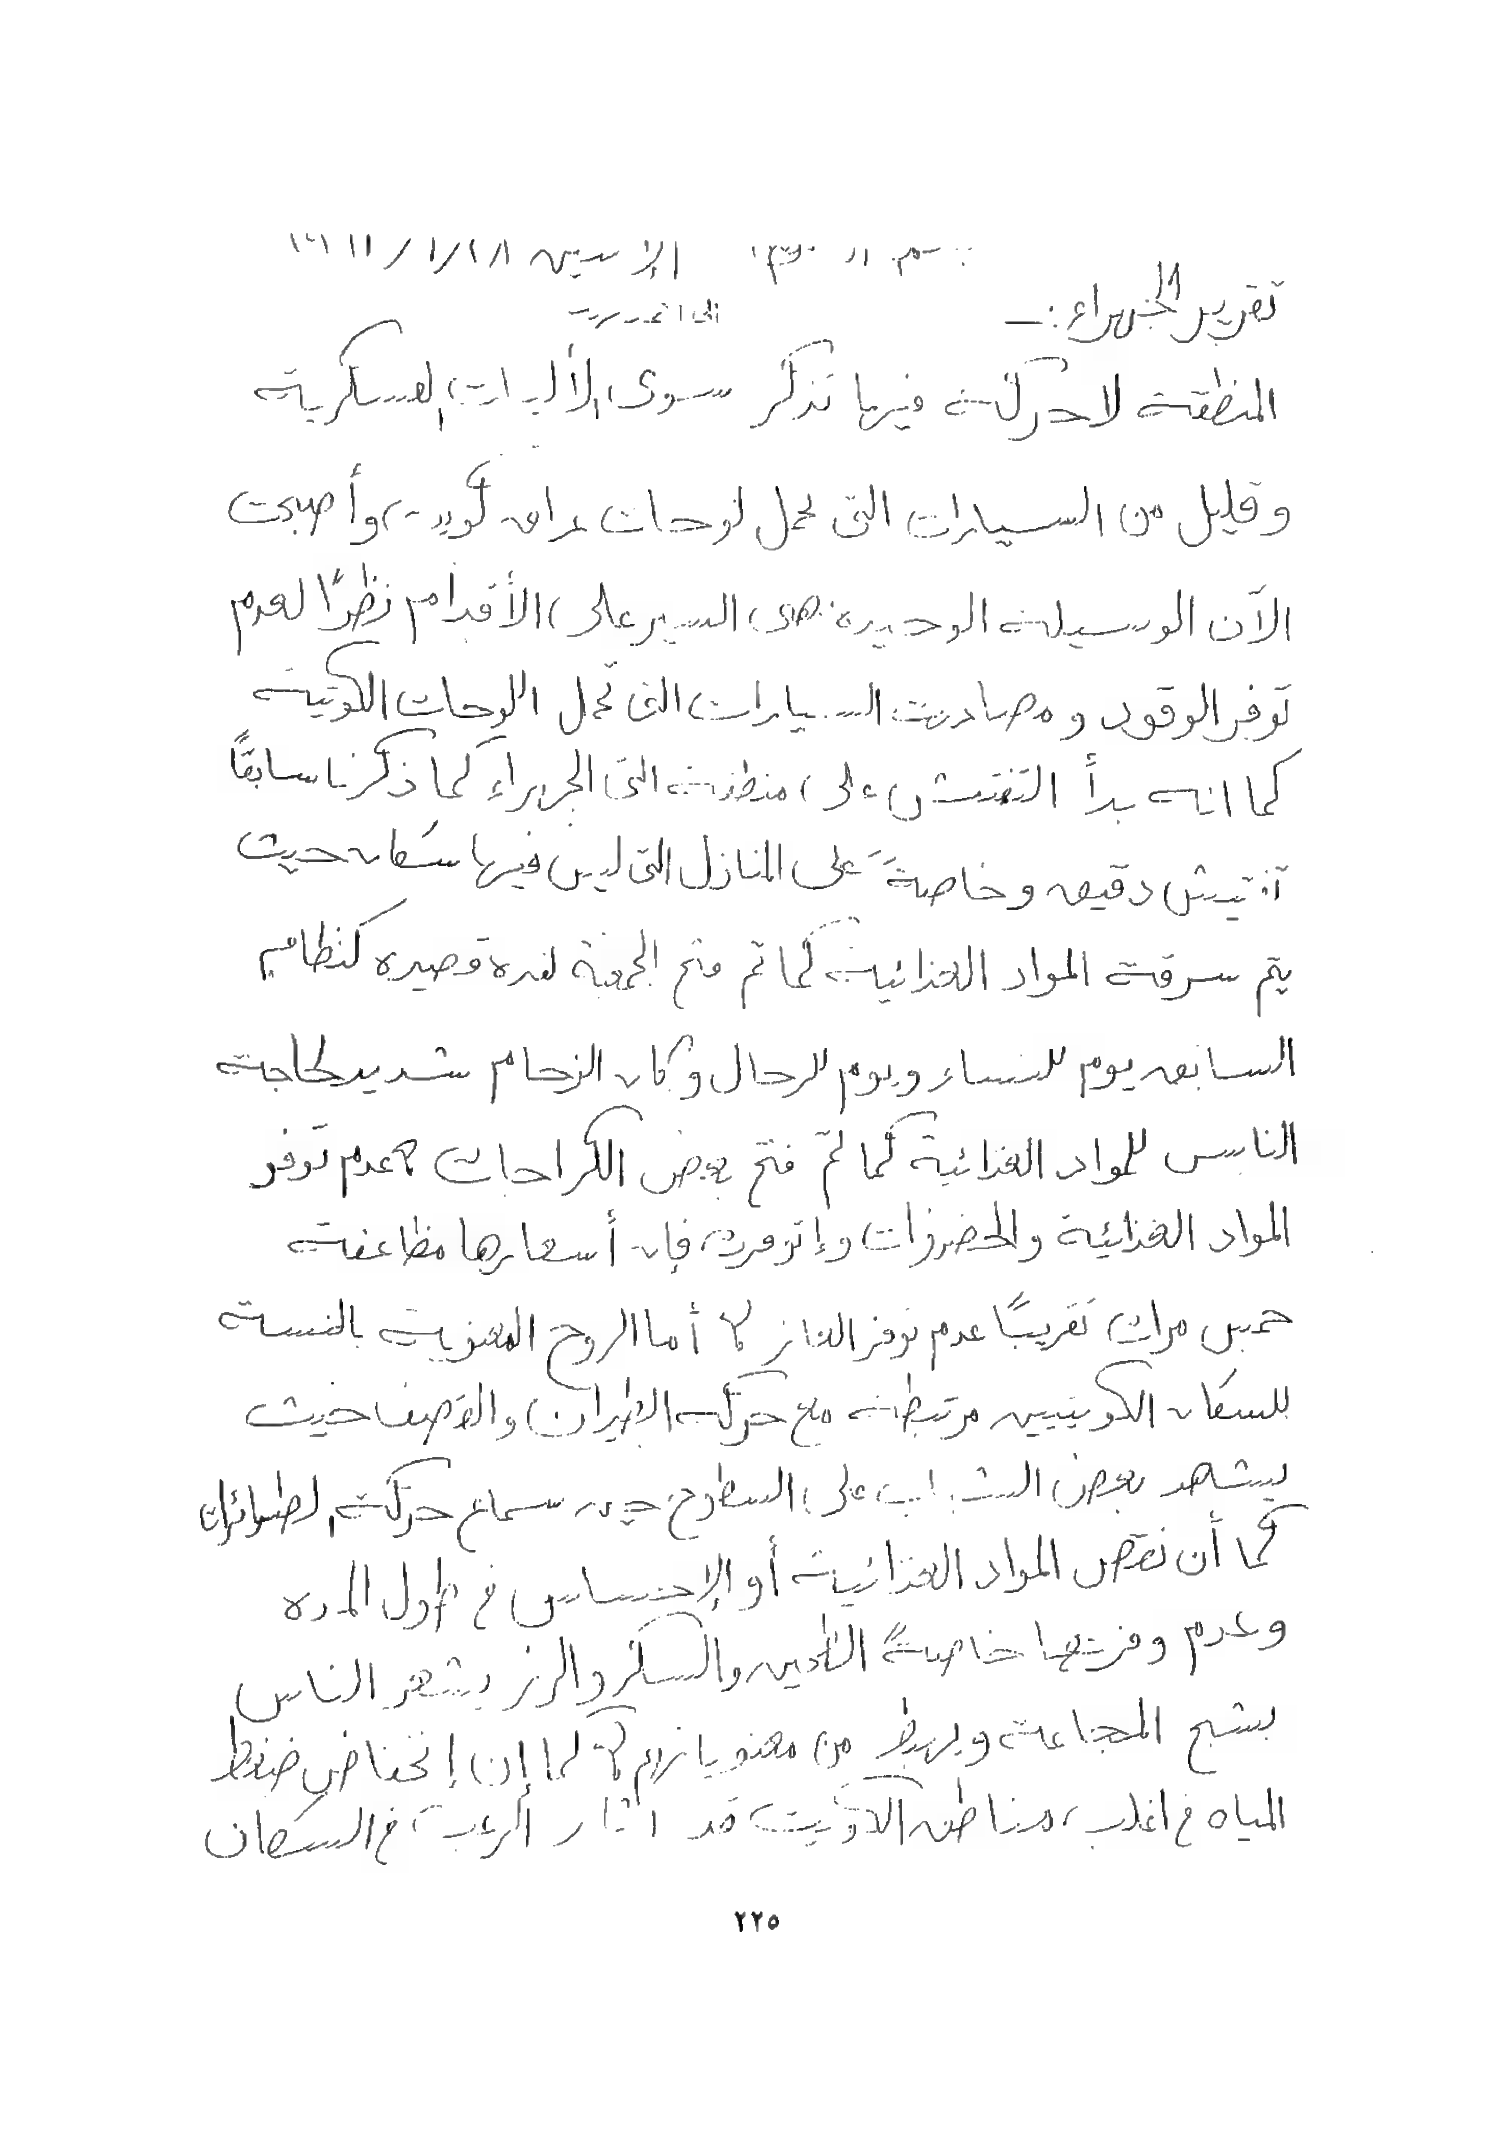 الإثنين ١٨/١/
تقرير الجهراء :ـ
المنطقة لا حركة فيها تذكر سوى الأليات العسكرية
وقليل من السيارات التى تحمل لوحات عراق كويت وأصبحت
الآن الوسيلة الوحيدة هى السير على الأقدام نظرًا لعدم
توفر الوقود ومصادرت السيارات التى تحمل اللوحات الكويتية
كما انه بدأ التفتيش على منطقة الجهراء كما ذكرنا سابقًا
تفتيش دقيق وخاصةً على المنازل التى ليس فيها سكان حيث
يتم سرقة المواد الغذائية كما تم فتح الجمعية لفترة قصيره كنظام
السابق يوم للنساء ويوم للرجال وكان الزحام شديد لحاجة
الناس للمواد الغذائية كما تمّ فتح بعض الكراجات عدم توفر
المواد الغذائية والخضروات وإن توفرت فإن أسعارها مظاعفة
خمس مرات تقريبًا عدم توفر الغاز أما الروح المعنوية بالنسبة
للسكان الكويتيين مرتبطة مع حركة الطيران والقصف حيث
يشاهد بعض الشباب على السطوح حين سماع حركة الطائرات
كما أن نقص المواد الغذائية أو الإحساس فى طول المده
وعدم وفرتها خاصةً الطحين والسكر والرز يشعر الناس
بشبح المجاعة ويهبط من معنوياتهم كما إن إنخفاض ضغط
المياه فى اغلب مناطق الكويت قد اثار الرعب فى السكان
٢٢٥